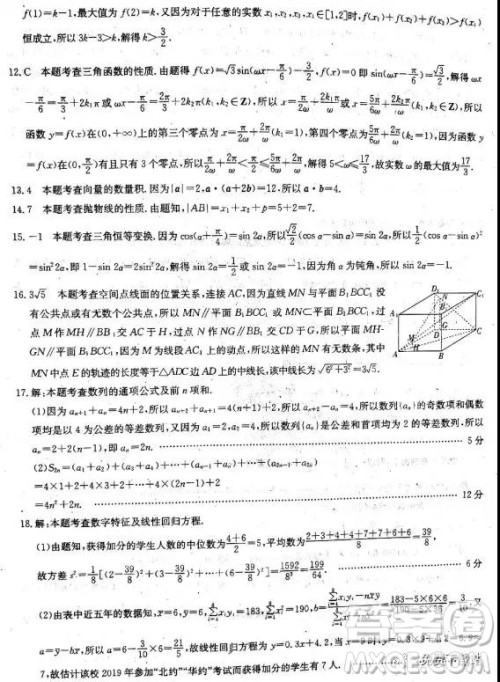 f(1)=k-1,最大值为 f(2)=k,又因为对于任意的实数 x₁,x₂,x₃∈[1,2]时,f(x₁)+f(x₂)+f(x₃)>f(x₄)
恒成立,所以 3k-3>k,解得 k>3/2.
12.C 本题考查三角函数的性质.由题得 f(x)=√3sin(ωx-π/6)-3/2,f(x)=0 即 sin(ωx-π/6)=√3/2,解得 ωx
-π/6=π/3+2k₁π 或 ωx-π/6=2π/3+2k₂π(k₁,k₂∈Z),所以 x=π/2ω+2k₁π/ω 或 x=5π/6ω+2k₂π/ω(k₁,k₂∈Z),所以
函数 y=f(x)在(0,+∞)上的第三个零点为 x=π/2ω+2π/ω(k₁=1),第四个零点为 x=5π/6ω+2π/ω(k₂=1),因为函数 y
=f(x)在(0,π/2)有且只有 3 个零点,所以π/2ω+2π/ω<π/2≤5π/6ω+2π/ω,解得 5<ω≤17/3,故实数 ω 的最大值为17/3.
13.4 本题考查向量的数量积.因为|a|=2,a·(a+2b)=12.所以 a·b=4.
14.7 本题考查抛物线的性质.由题知,|AB|=x₁+x₂+p=5+2=7.
15.-1 本题考查三角恒等变换.因为 cos(α+π/4)=sin 2α,所以√2/2(cos α-sin α)=sin 2α,所以1/2(cos α-sin α)²
=sin²2α,即 1-sin 2α=2sin²2α,解得 sin 2α=1/2或 sin 2α=-1,因为角 α 为钝角,所以 sin 2α=-1.
16.3√5 本题考查空间点线面的位置关系,连接 AC,因为直线 MN 与平面 B₁BCC₁ 没
有公共点或有无数个公共点,所以 MN∥平面 B₁BCC₁ 或 MN⊂平面 B₁BCC₁,过
点 M 作 MH∥BB₁ 交 AC 于 H,过点 N 作 NG∥BB₁ 交 CD 于 G,所以平面 MH-
GN∥平面 B₁BCC₁,因为 M 为线段 AC₁ 上的动点,所以这样的 MN 有无数条,其中
MN 中点 E 的轨迹的长度等于△ADC 边 AD 上的中线长,该中线长为√6²+3²=3√5.
17.解:本题考查数列的通项公式及前 n 项和.
(1)因为 aₙ₊₁+aₙ=4n+2,所以 aₙ₊₂+aₙ₊₁=4(n+1)+2,所以 aₙ₊₂-aₙ=4,所以数列{aₙ}的奇数项和偶数
项均是以 4 为公差的等差数列,又因为 a₁=2,a₂=4,所以数列{aₙ}是公差和首项均为 2 的等差数列,所以
aₙ=2+2(n-1),即 aₙ=2n. 5 分
(2)S₂ₙ=(a₁+a₂)+(a₃+a₄)+…+(aₙ₋₁+aₙ)+…+(a₂ₙ₋₁+a₂ₙ)
=4×1+2+4×3+2+…+4×(2n-1)+2
=4n²+2n. 12 分
18.解:本题考查数字特征及线性回归方程.
(1)由题知,获得加分的学生人数的中位数为4+6/2=5,平均数为2+3+4+4+7+7+6+6/8=39/8,
故方差 s²=1/8[(2-39/8)²+(3-39/8)²+…+(6-39/8)²]=1592/8³=199/64. 6 分
(2)由表中近五年的数据知,x=6,y=6,
183-5×6×6
a=y-bx,所以 a=6-3/10×6=21/5,故线性回归方程为 y=0.3x+4.2,
7,故估计该校 2019 年参加“北约”“华约”考试而获得加分的学生有 7 人.